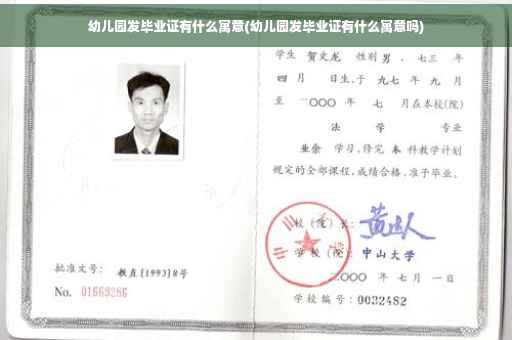 幼儿园发毕业证有什么寓意(幼儿园发毕业证有什么寓意吗)
学生 贺文龙 性别 男，七三 年
四 月 日生，于 九七 年 九 月
至 二〇〇〇 年 七 月在本校(院)
法 学 专业
业余 学习，修完 本 科教学计划
规定的全部课程，成绩合格，准予毕业。
校 (院) 长：
学 校 (院) 中山大学
二〇〇〇 年 七 月 一 日
学校编号：0032482
批准文号： 教直[1993]8号
No. 01669286